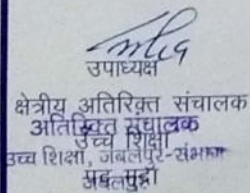 उपाध्यक्ष
क्षेत्रीय अतिरिक्त संचालक
अतिरिक्त संचालक
उच्च शिक्षा
उच्च शिक्षा, जबलपुर-संभाग